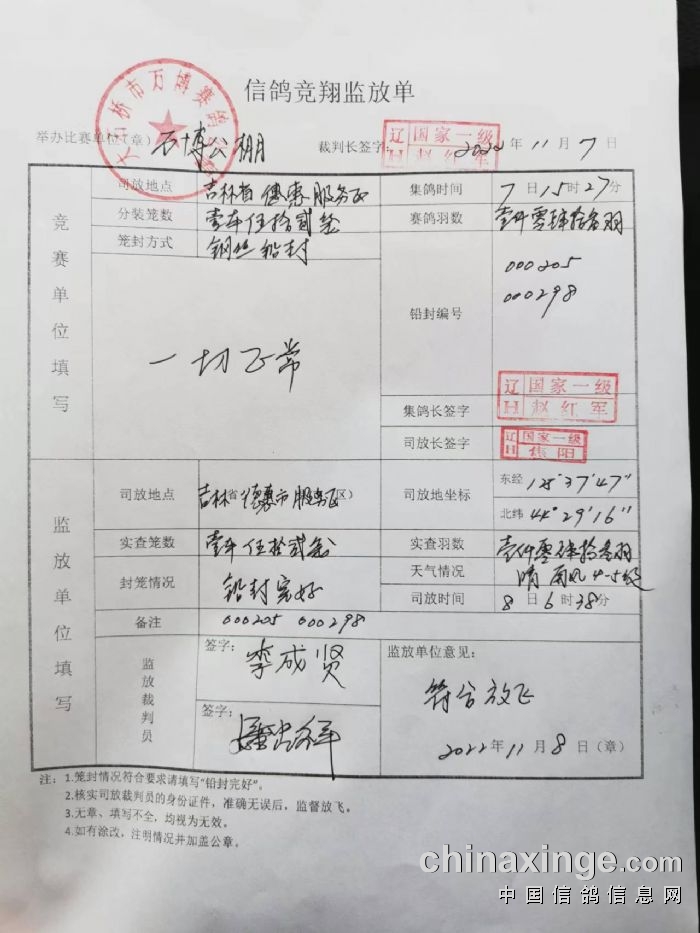 信鸽竞翔监放单
大石桥市万博赛鸽公棚
举办比赛单位（章） 万博公棚 裁判长签字： 2022 年 11 月 7 日
辽 国家一级
H 赵红军
竞赛单位填写
司放地点 吉林省 德惠 服务区 集鸽时间 7 日 15 时 27 分
分装笼数 壹车伍拾贰笼 赛鸽羽数
笼封方式 钢丝铅封 铅封编号 000205
000298
一切正常
集鸽长签字 辽 国家一级
H 赵红军
司放长签字 辽 国家一级
H 焦阳
监放单位填写
司放地点 吉林 省 德惠 市 服务区 区） 司放地坐标 东经 125°37'47"
北纬 44°29'16"
实查笼数 壹车伍拾贰笼 实查羽数
天气情况 晴 南风 4-5级
封笼情况 铅封完好 司放时间 8 日 6 时 38 分
备注 000205 000298
监放裁判员
签字： 李成贤 监放单位意见：
符合放飞
签字：
2022 年 11 月 8 日（章）
注： 1.笼封情况符合要求请填写“铅封完好”。
2.核实司放裁判员的身份证件，准确无误后，监督放飞。
3.无章、填写不全，均视为无效。
4.如有涂改，注明情况并加盖公章。
chinaxinge.com
中国信鸽信息网